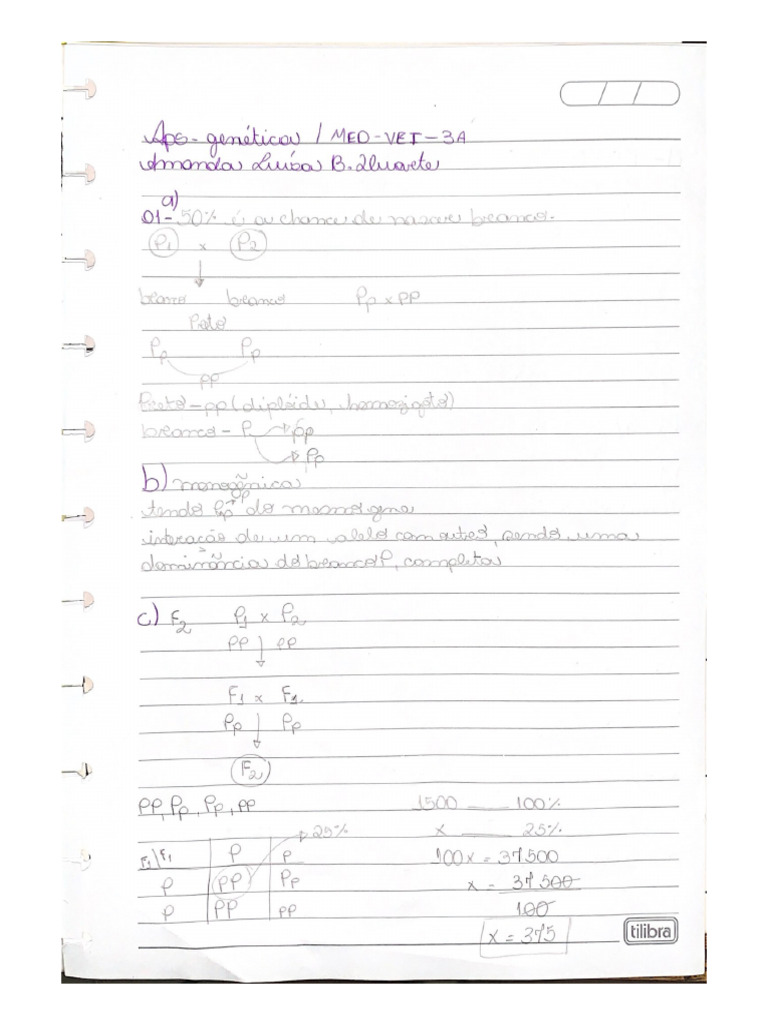 Aps - genética / MED-VET-3A
Amanda Luísa B. Duarte
a)
01- 50% é a chance de nascer branco.
P1 x P2
branco branco Pp x PP
Preto
Pp Pp
pp
Preto - pp (diplóide, homozigoto)
branco - P pp
Pp
b) monogênica
tendo Pp do mesmo gene
interação de um alelo com outro, sendo uma
dominância do branco P, completa
c) F2 P1 x P2
PP pp
F1 x F1
Pp Pp
F2
PP, Pp, Pp, pp 1500 100%
25% x 25%
F1\F1 P p 100x = 37500
P PP Pp x = 37500
P PP pp 100
x = 375
tilibra